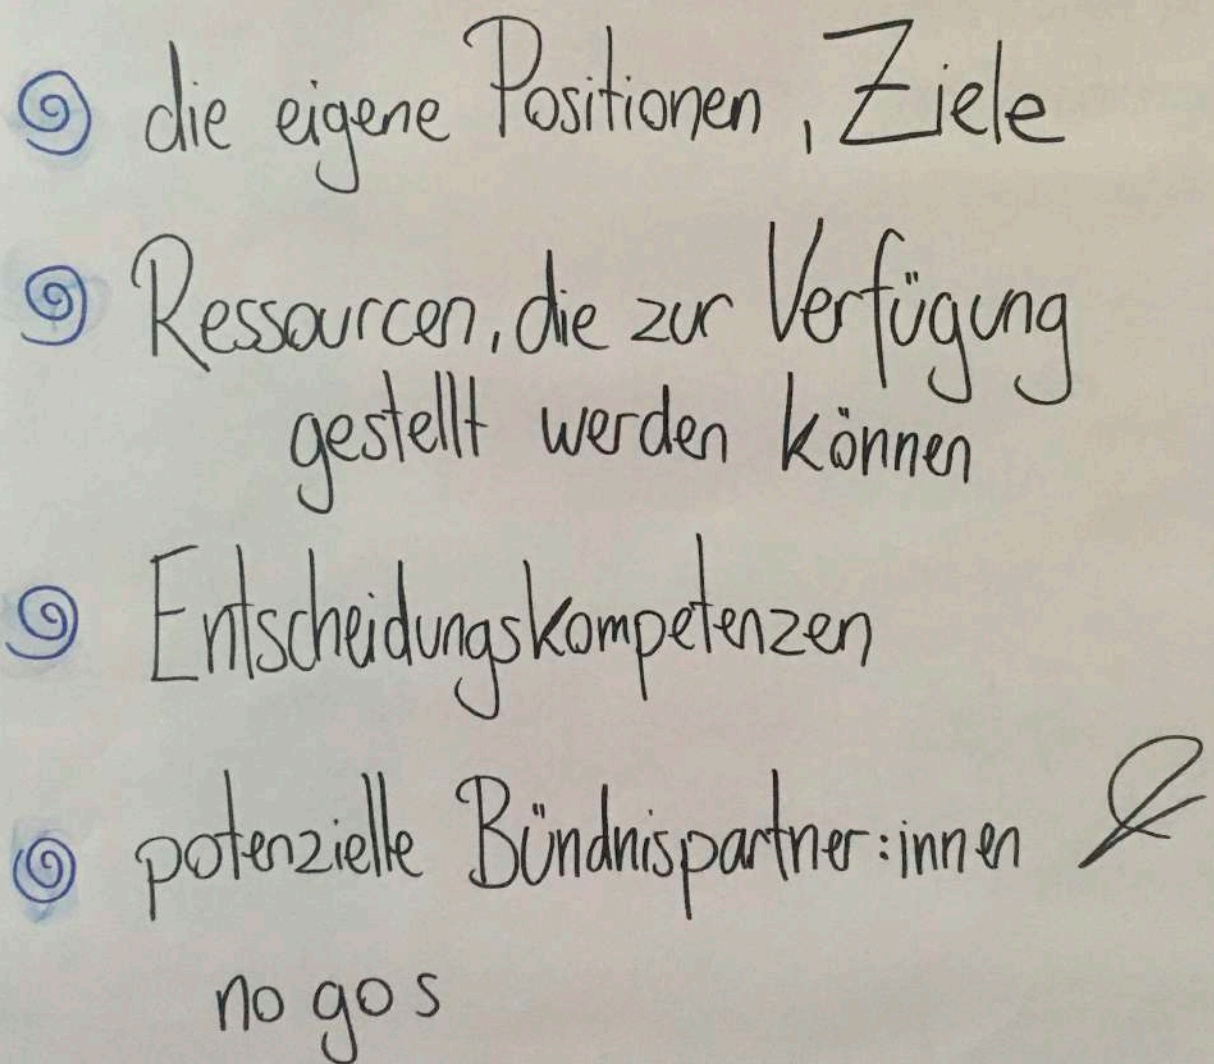 die eigene Positionen, Ziele
Ressourcen, die zur Verfügung
gestellt werden können
Entscheidungskompetenzen
potenzielle Bündnispartner:innen &
no gos